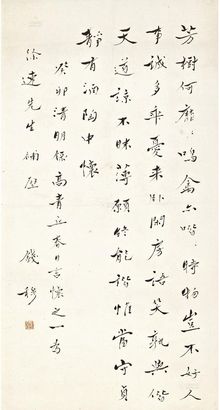 芳樹何靡〻鳴禽亦喈〻時物豈不好人
事誠多乖憂來卧閒房語笑孰與偕
天道諒不昧薄願終能諧惟當守貞
靜有酒陶中懷
癸卯清明錄高青丘春日言懷之一為
徐速先生補壁
錢穆